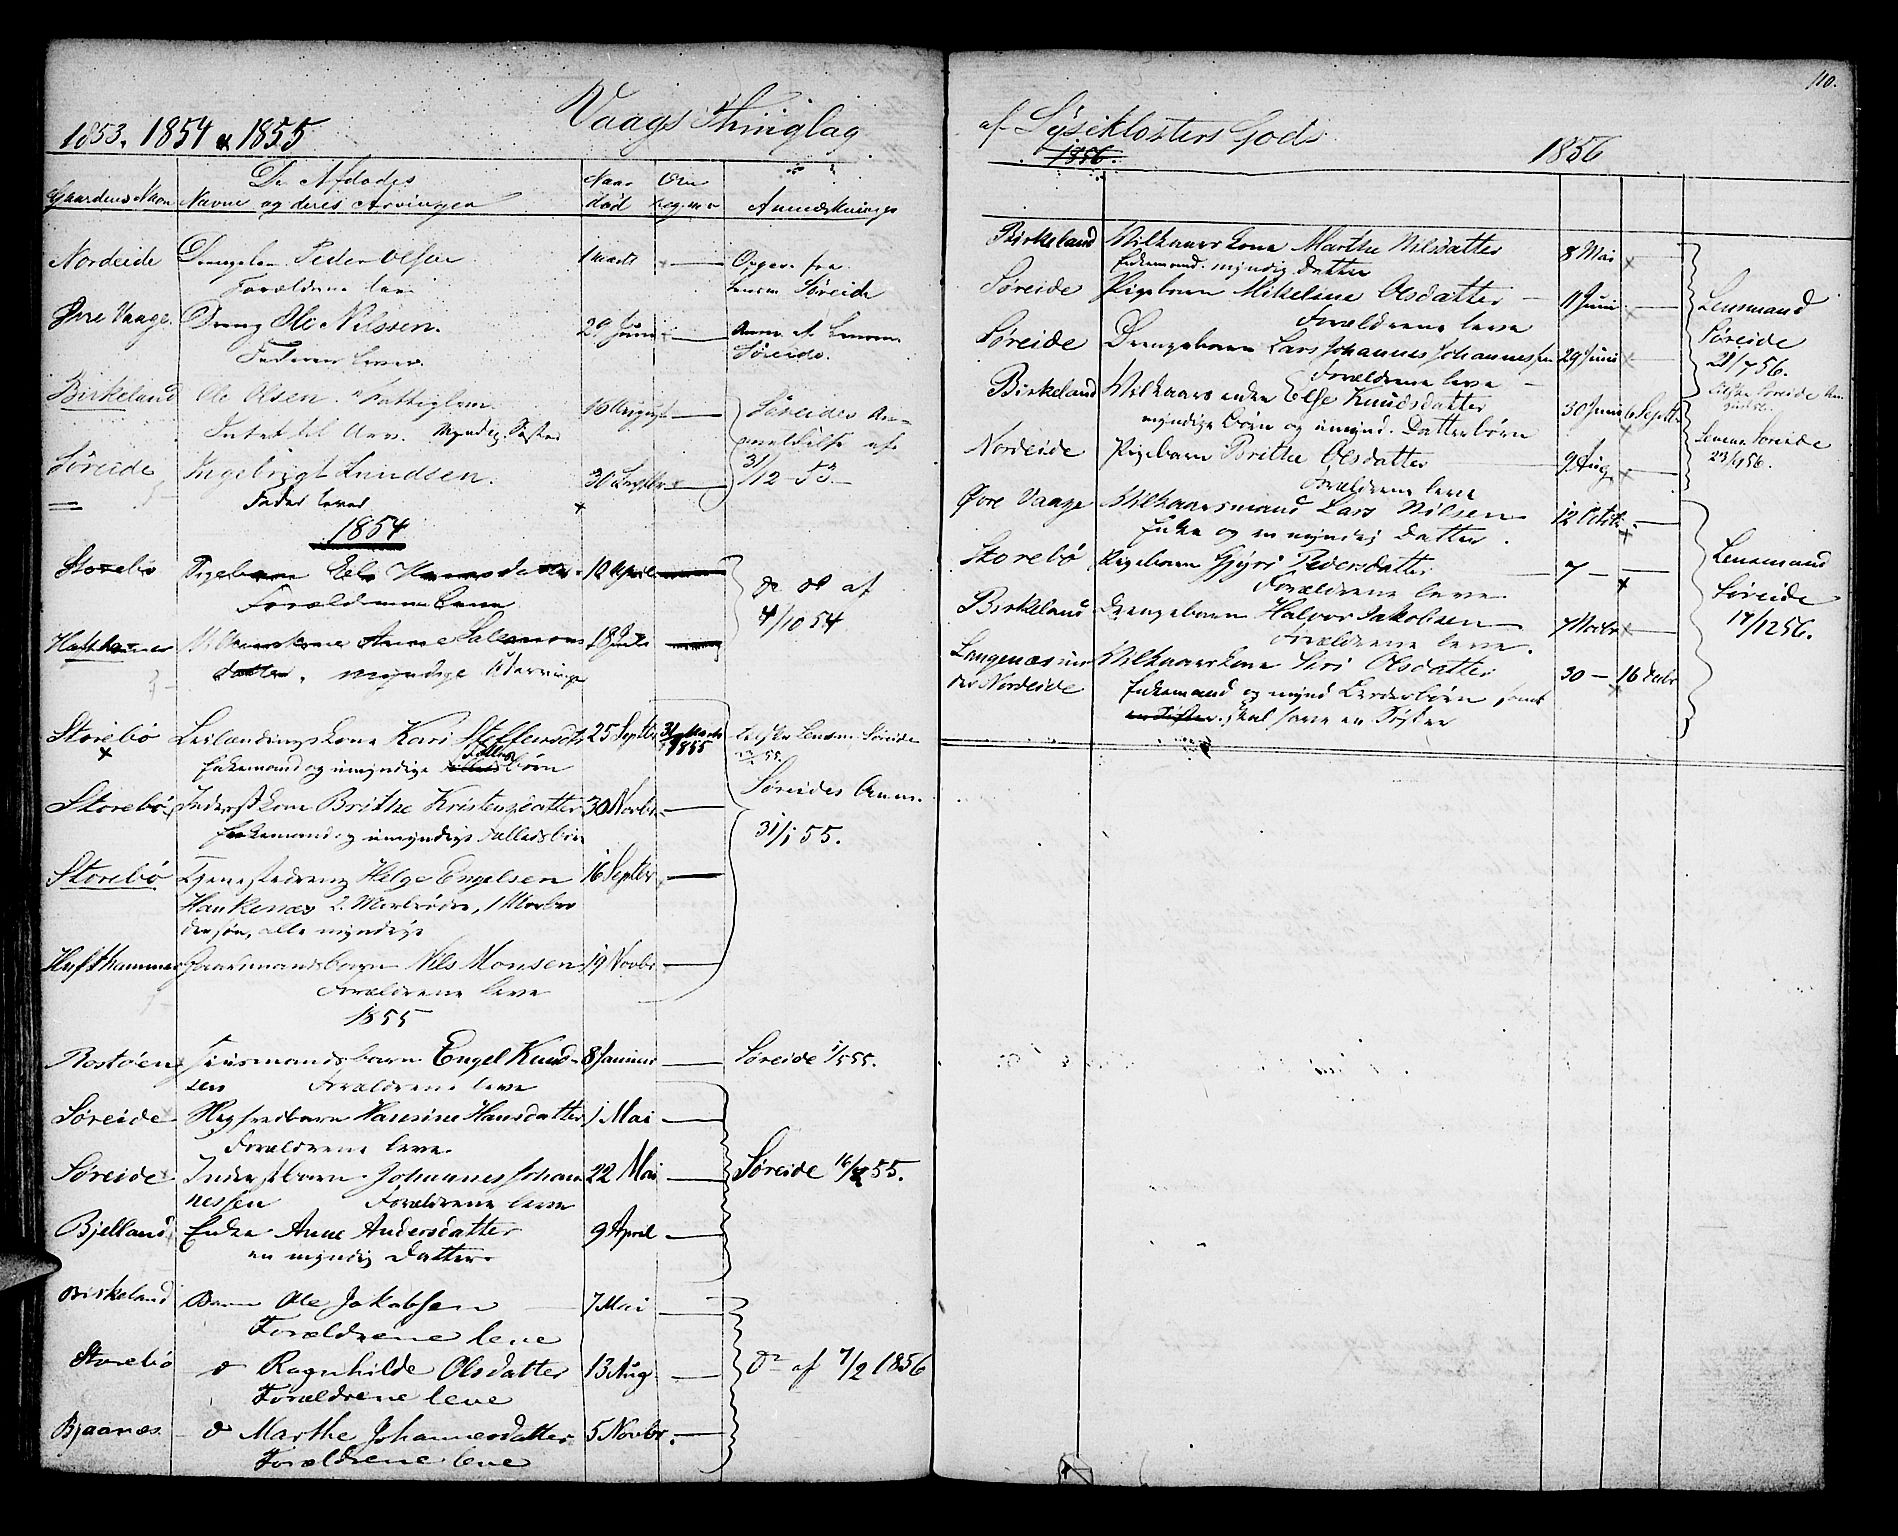 1853. 1854 & 1855
Vaags Thinglag
Gaardens Navn
De Afdødes
Navne og deres Arvinger
Naar
død
Anmærkninger
Nordeide Peder Olsen 1 Marts
Forældrene leve
Lensm. Søreide
Øvre Vaage. Dreng Ole Nilssen. 29 Juni
Faderen lever.
Søreide.
Birkeland Ole Olsen. Fattiglem. 16 August
Intet til Arv. Myndig Søster
Søreides An-
meldelse af
31/12 53
Søreide Ingebrigt Knudsen. 30 Septbr
Fader lever
1854
Storebø Pigebarn 12 April
Forældrene leve
do do af
4/10 54
Anne Salamons
datter. myndige Udarvinger
Storebø Leilændingskone Kari Steffensdtr 25 Septbr 31 Marts
1855
Enkemand og umyndige fælles børn
Lensm. Søreide
Storebø Inderstkone Brithe Kristensdatter 30 Novbr
Enkemand og umyndige Fællesbørn
Søreides Anm.
31/1 55.
Storebø Tjenestedreng Helge Engelsen 16 Septbr
Haukenæs 2 Morbrødre, 1 Morbro
dersøn, alle myndige
Hufthammer Gaardmandsbarn Nils Monsen 19 Novbr
Forældrene leve
1855
Rostøen Huusmandsbarn Engel Knud- 8 Januar
sen Forældrene leve
Søreide 1/5 55.
Søreide Hansine Hansdatter 1 Mai
Forældrene leve.
Søreide Inderstbarn Johannes Johan 22 Mai
nessen Forældrene leve
Søreide 16/8 55.
Bjelland Enke Anne Andersdatter 9 April
en myndig Datter.
Birkeland Barn Ole Jakobsen 7 Mai
Forældrene leve
Storebø do Ragnhilde Olsdatter 13 Aug
Forældrene leve
do af 7/2 1856
Bjaanæs do Marthe Johannesdatter 5 Novbr.
Forældrene leve
110.
af Lyseklosters Gods
1856.
1856
Birkeland Vilkaarskone Marthe Nilsdatter 8 Mai
Enkemand. myndig Datter
Søreide Pigebarn Mikeline Olsdatter 11 Juni
Forældrene leve
Søreide Drengebarn Lars Johannes Johannessen 29 Juni
Forældrene leve
Lensmand
Søreide
28/7 56.
Birkeland Vilkaarsenke Else Knudsdatter 30 Juni 6 Septbr
myndige Børn og umynd. Datterbørn
Nordeide Pigebarn Brithe Olsdatter 9 Aug
Forældrene leve
Lensm Søreide
Øvre Vaage Vilkaarsmand Lars Nilsen 12 Octbr
Enke og en myndig Datter.
Storebø Pigebarn Gjøri Pedersdatter 7 —
Forældrene leve
Birkeland Drengebarn Halvor Jakobsen 7 Novbr
Forældrene leve.
Lensmand
Søreide
17/12 56.
Langenæs un
der Nordeide
Vilkaarskone Siri Olsdatter 30 — 16 Decbr
Enkemand og mynd Særderbørn samt
en Søster. skal have en Søster